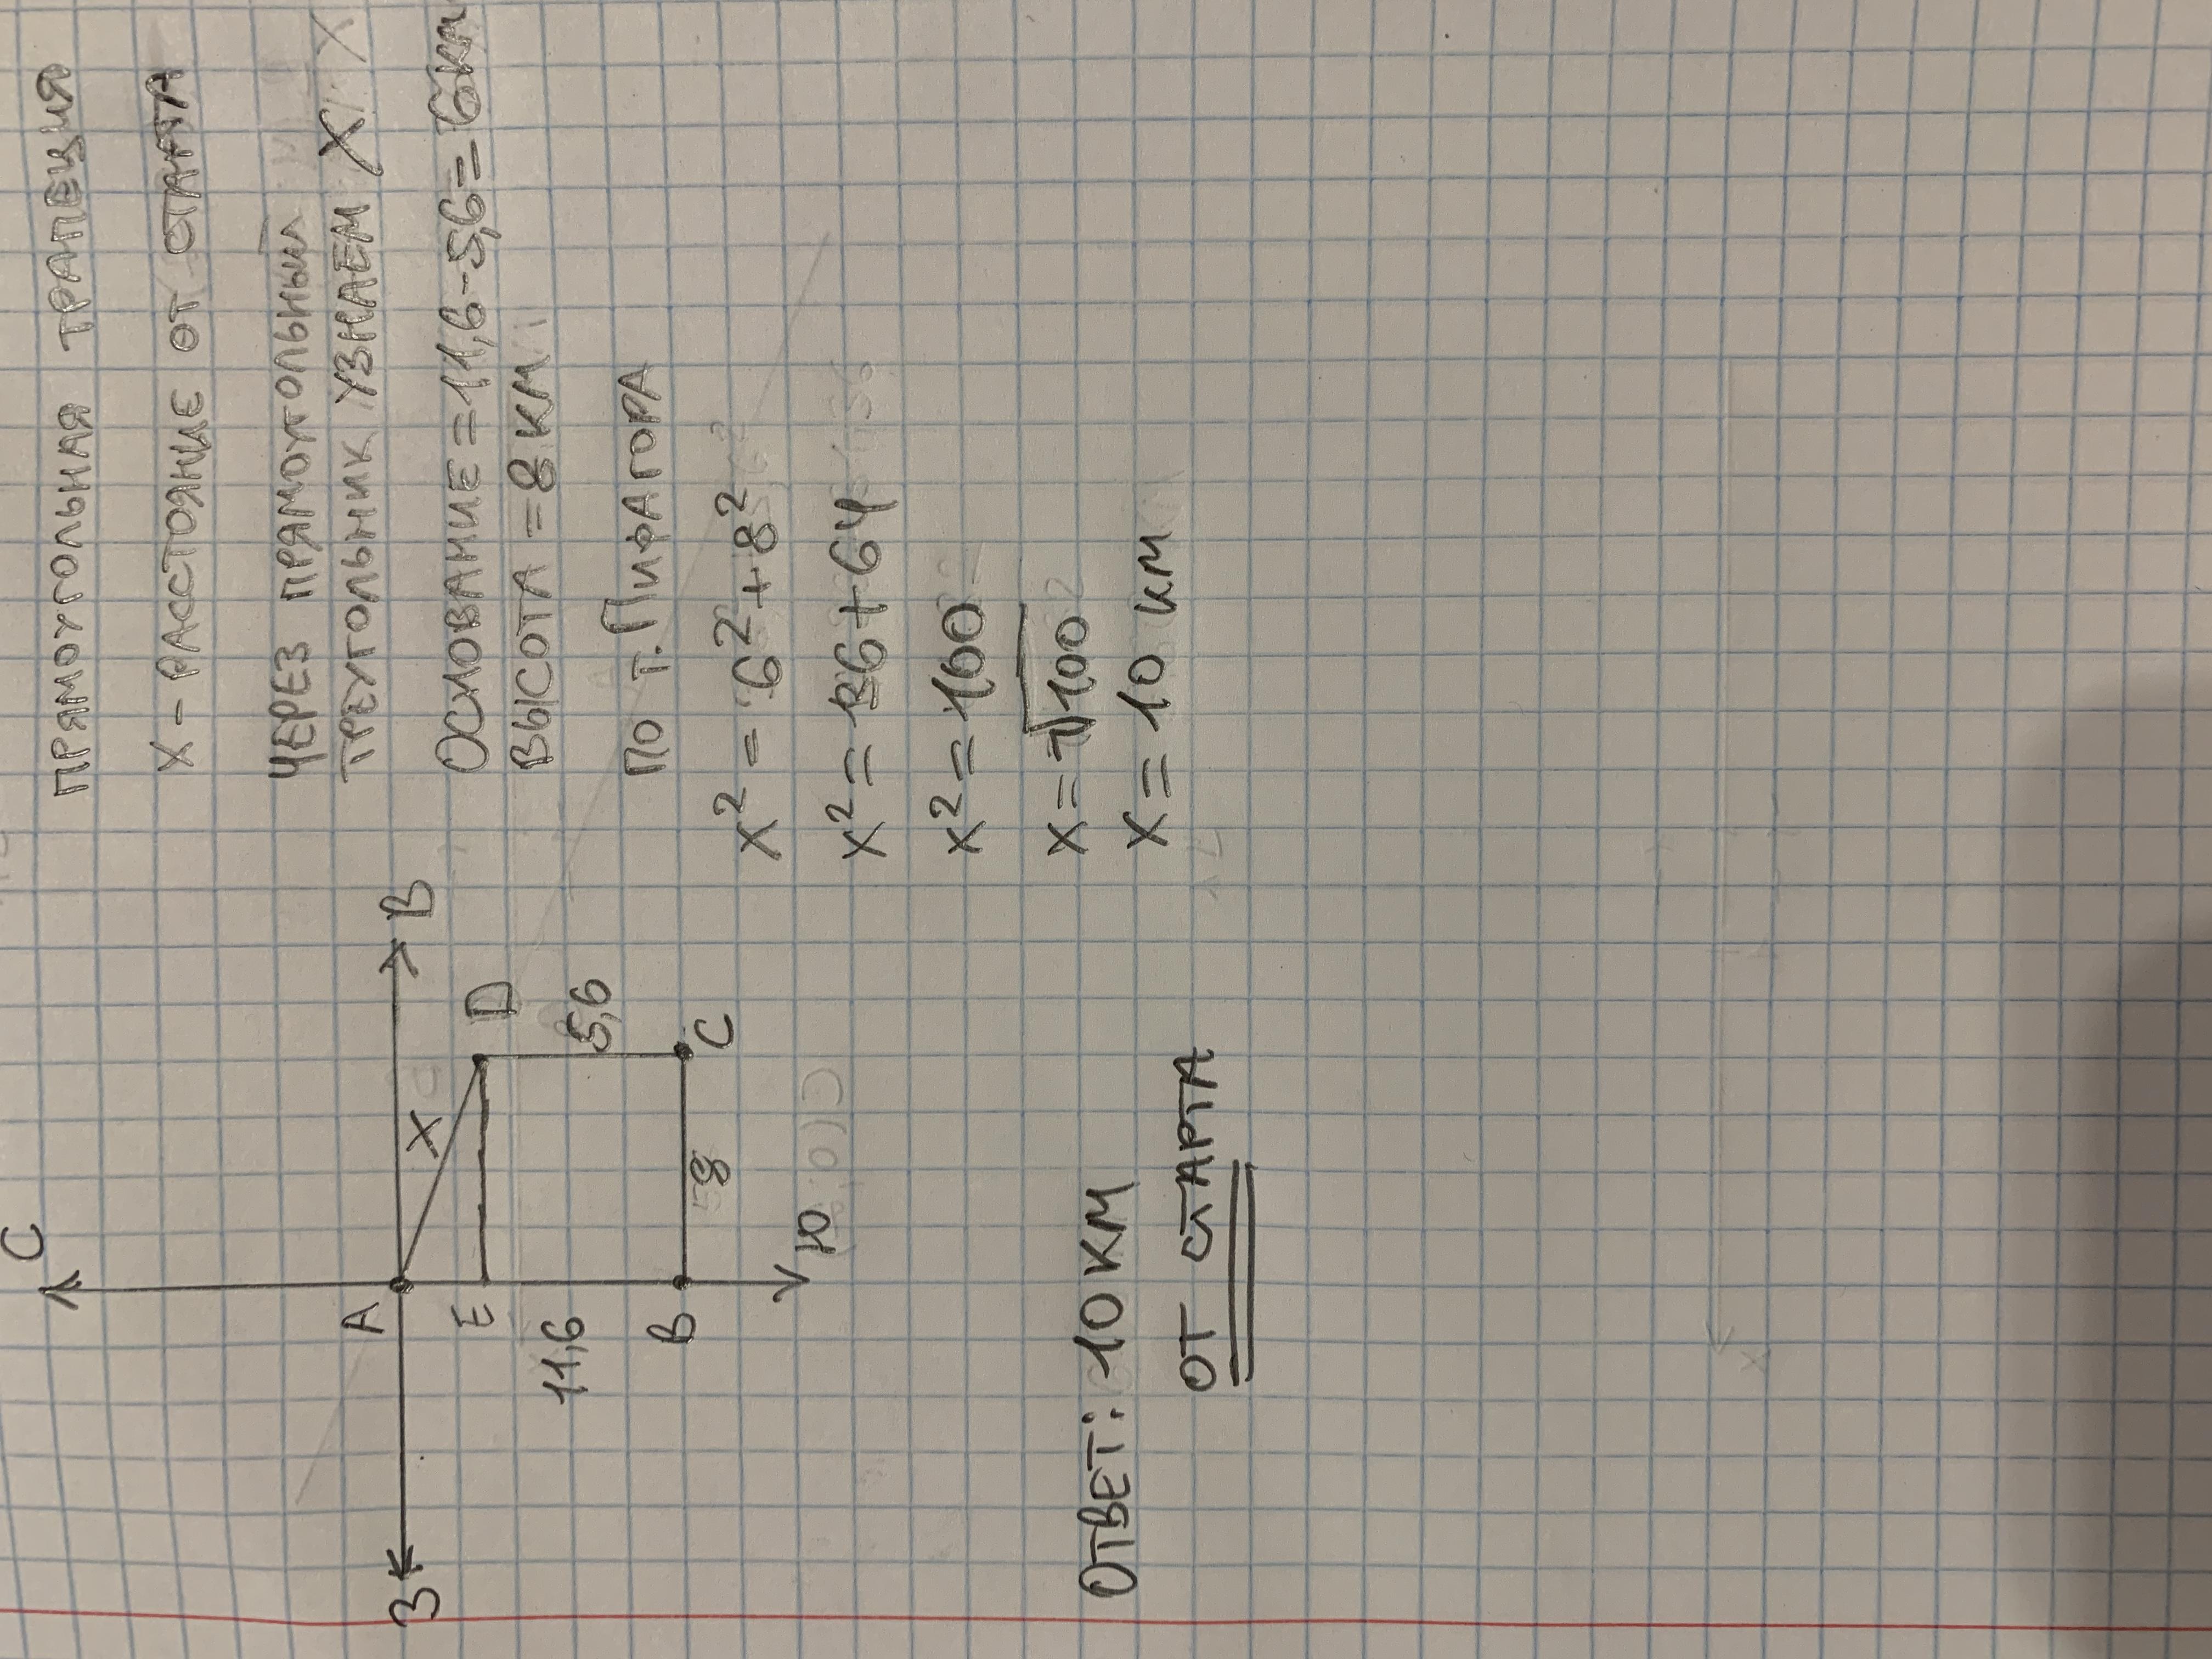 С
А
З
В
Х
Е
D
11,6
5,6
В
8
С
Ю
ПРЯМОУГОЛЬНАЯ ТРАПЕЦИЯ
Х - РАССТОЯНИЕ ОТ СТАРТА
ЧЕРЕЗ ПРЯМОУГОЛЬНЫЙ
ТРЕУГОЛЬНИК УЗНАЕМ Х
ОСНОВАНИЕ = 11,6-5,6= 6км
ВЫСОТА = 8 КМ
ПО Т. ПИФАГОРА
x² = 6²+8²
x² = 36+64
x² = 100
x = √100
x = 10 км
ОТВЕТ: 10 КМ
ОТ СТАРТА